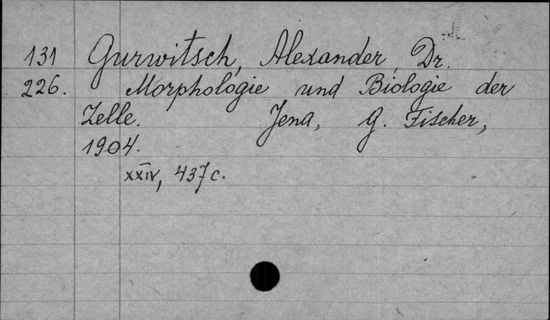 131 Gurwitsch, Alexander, Dr.
226. Morphologie und Biologie der
Zelle. Jena, G. Fischer,
1904.
XXIV, 437 c.